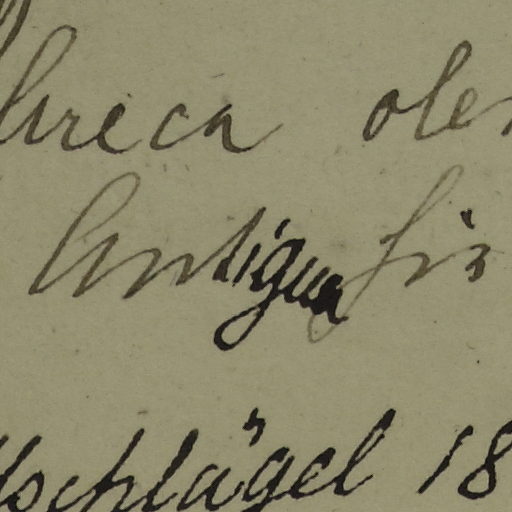 Areca ole
Antigua fis
schlägel 18